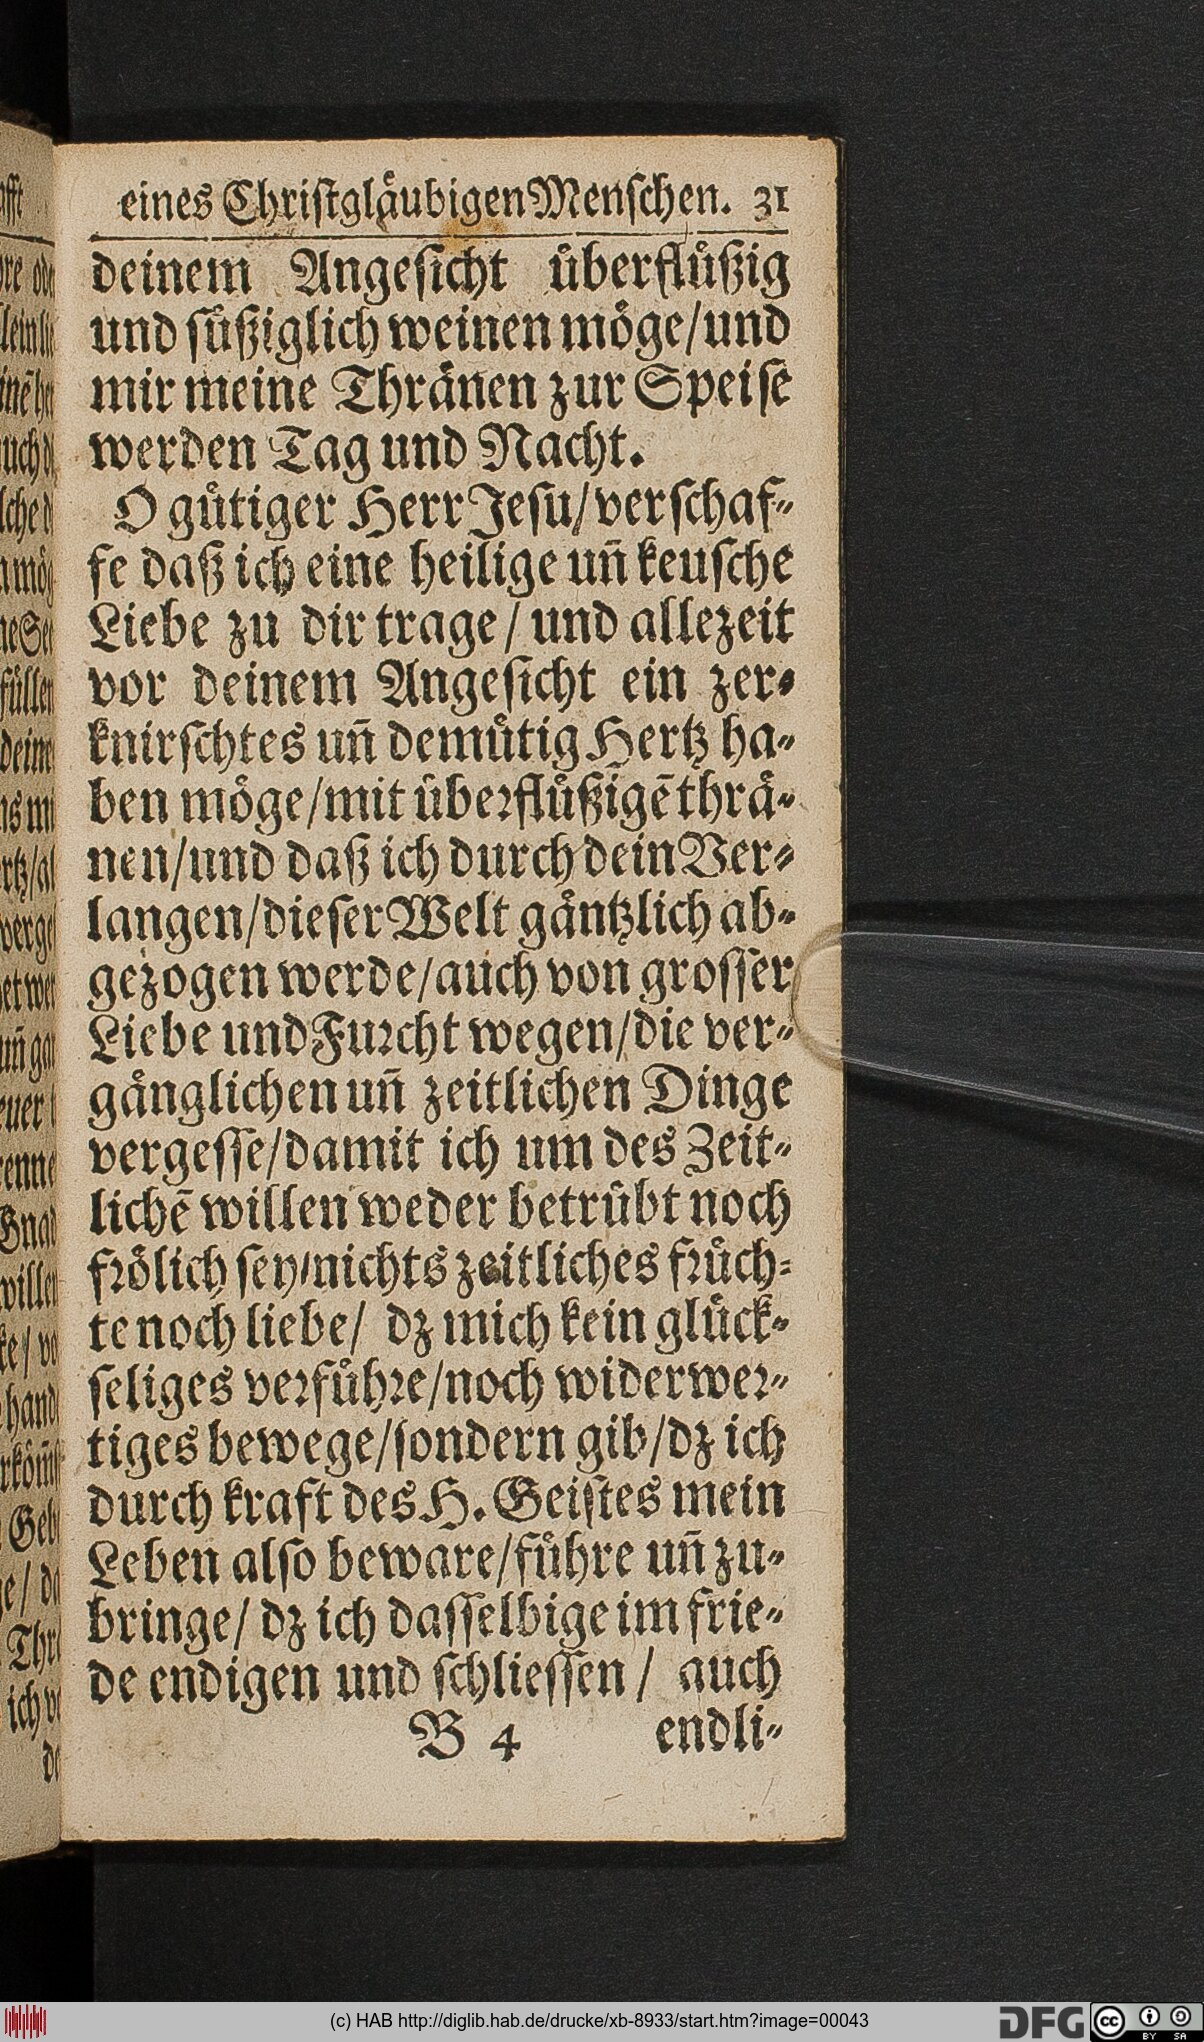 eines Christgläubigen Menschen. 31
deinem Angesicht überflüßig
und süßiglich weinen möge/und
mir meine Thränen zur Speise
werden Tag und Nacht.
O gütiger Herr Jesu/verschaf-
fe daß ich eine heilige uñ keusche
Liebe zu dir trage/ und allezeit
vor deinem Angesicht ein zer-
knirschtes uñ demütig Hertz ha-
ben möge/mit überflüßigẽ thrä-
nen/und daß ich durch dein Ver-
langen/dieser Welt gäntzlich ab-
gezogen werde/auch von grosser
Liebe und Furcht wegen/die ver-
gänglichen uñ zeitlichen Dinge
vergesse/damit ich um des Zeit-
lichẽ willen weder betrübt noch
frölich sey/nichts zeitliches früch-
te noch liebe/ dz mich kein glück-
seliges verführe/noch widerwer-
tiges bewege/sondern gib/dz ich
durch kraft des H. Geistes mein
Leben also beware/führe uñ zu-
bringe/ dz ich dasselbige im frie-
de endigen und schliessen/ auch
B 4 endli-
(c) HAB http://diglib.hab.de/drucke/xb-8933/start.htm?image=00043
DFG
cc BY SA